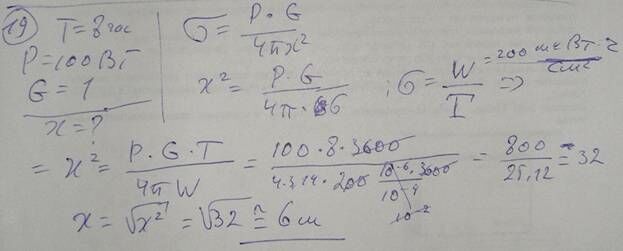 19 T = 8 час
P = 100 ВТ
G = 1
x = ?
σ = P · G / 4πx²
x² = P · G / 4π · σ ; σ = W / T = 200 мкВТ · г / см² ⇒
= x² = P · G · T / 4πW = 100 · 8 · 3600 / 4 · 3,14 · 200 10⁻⁶ · 3600 / 10⁻⁴ 10⁻² = 800 / 25,12 = 32
x = √x² = √32 ≅ 6 м